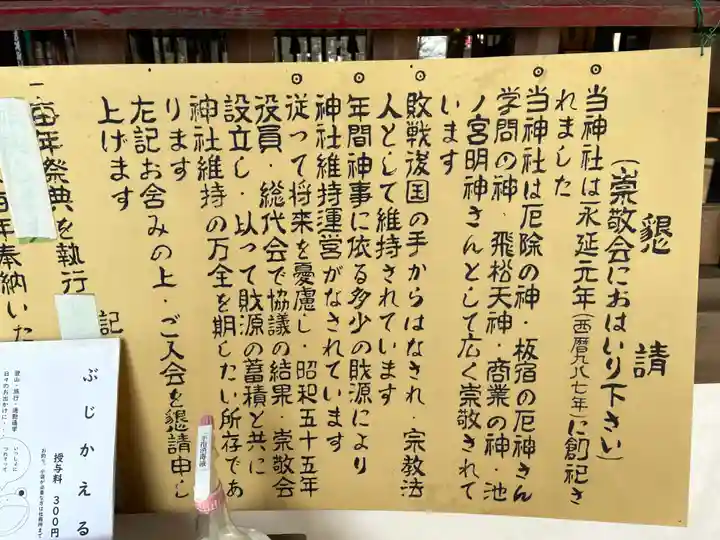 懇請
(崇敬会におはいり下さい)
◎当神社は永延元年(西暦九八七年)に創祀さ
れました
◎当神社は厄除の神・板宿の厄神さん
学問の神・飛松天神・商業の神・池
ノ宮明神さんとして広く崇敬されて
います
◎敗戦後国の手からはなされ・宗教法
人として維持されています
◎年間神事に依る多少の財源により
神社維持運営がなされています
◎従って将来を憂慮し・昭和五十五年
役員・総代会で協議の結果・崇敬会
設立し・以って財源の蓄積と共に
神社維持の万全を期したい所存であ
ります
左記お含みの上・ご入会を懇請申し
上げます
記
一毎年祭典を執行
毎年奉納いた
ぶじかえる
登山・旅行・通勤通学
日々のお出かけに・・
いっしょに
つれそって
授与料 300円
手指消毒液